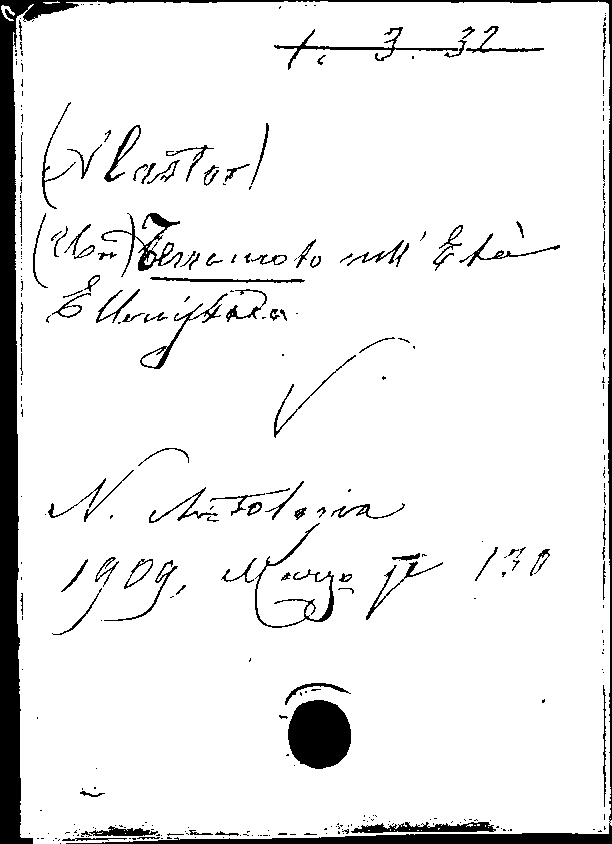 1. 3. 32
(Nestor)
(Un) Terremoto nell' Età
Ellenistica
N. Antologia
1909, Marzo p 130